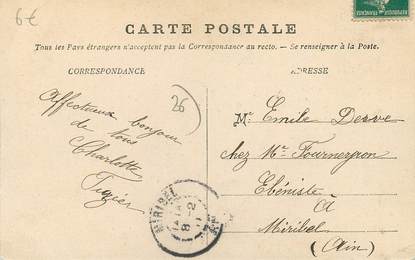 6€
CARTE POSTALE
Tous les Pays étrangers n'acceptent pas la Correspondance au recto. — Se renseigner à la Poste.
CORRESPONDANCE
ADRESSE
26
Affectueux bonjour
de tous
Charlotte
M. Emile
chez Mr Fournezron
Ebéniste
à
Miribel
(Ain)
MIRIBEL
8-2